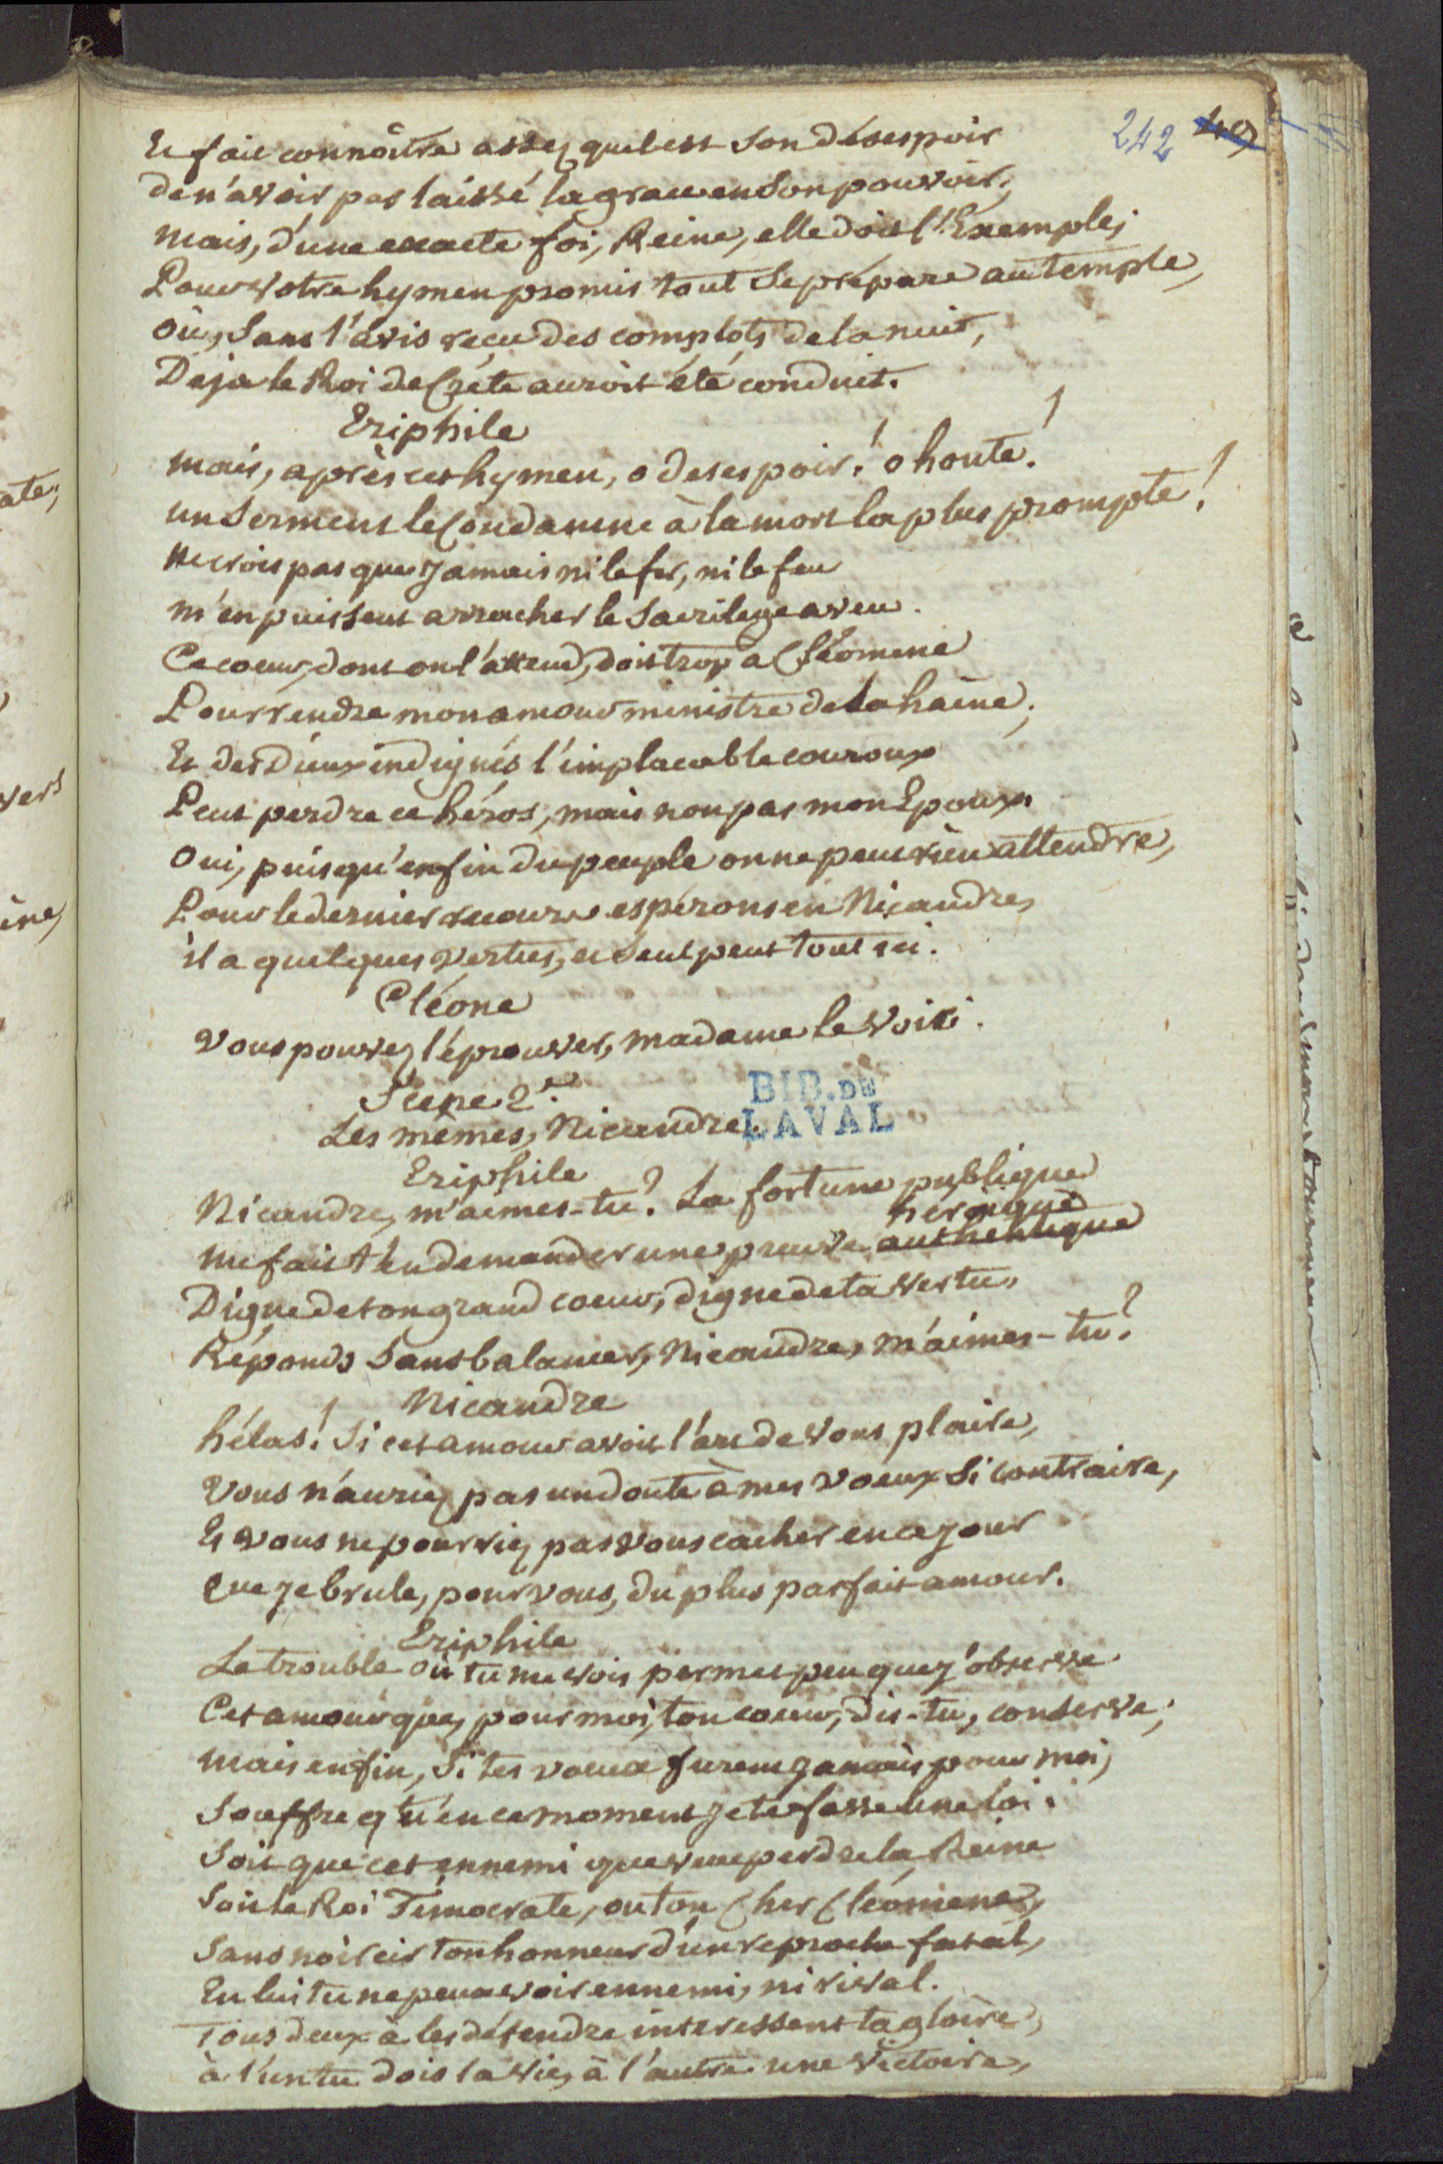 242 49
Et fait connoître assez quel est son désespoir
de n'avoir pas laissé la grace en son pouvoir;
mais, d'une exacte foi, Reine, elle doit l'Exemple;
Pour votre hymen promis tout se prépare au temple,
où, sans l'avis reçu des complots de la nuit,
Deja le Roi de Crète auroit été conduit.
Eriphile
mais, après cet hymen, o desespoir! o honte!
un serment le Condamne à la mort la plus prompte!
Ne crois pas que jamais ni le fer, ni le feu
m'en puissent arracher le sacrilege aveu.
Ce coeur, dont on l'attend, doit trop a Cléomene
Pour rendre mon amour ministre de la haine;
Et des Dieux indignés l'implacable couroux
Peut perdre ce héros, mais non pas mon Epoux.
Oui, puisqu'enfin du peuple on ne peut rien attendre,
Pour le dernier recours espérons en Nicandre,
il a quelques vertus, et seul peut tout ici.
Cléone
Vous pouvez l'éprouver, madame le voici.
Scene 2e.
Les mêmes, Nicandre.
BIB. DE
LAVAL
Eriphile
Nicandre, m'aimes-tu? La fortune publique
héroique
me fait t'en demander une preuve authentique
Digne de ton grand coeur, digne de ta vertu,
Réponds sans balancer, Nicandre, m'aimes-tu?
Nicandre
hélas! Si cet amour avoit l'art de vous plaire,
Vous n'auriez pas un doute à mes voeux si contraire,
Et vous ne pourriez pas vous cacher en ce jour
Que je brule, pour vous, du plus parfait amour.
Eriphile
Le trouble où tu me vois permet peu que j'observe
Cet amour que, pour moi, ton coeur, dis-tu, conserve;
mais enfin, si tes voeux furent jamais pour moi,
Souffre qu'en ce moment je te fasse une loi.
Soit que cet ennemi que veut perdre la Reine
Soit le Roi Témocrate, ou ton Cher Cléomene,
Sans noircir ton honneur d'un reproche fatal,
En lui tu ne peux voir ennemi, ni rival.
Tous deux à les défendre interessent ta gloire,
à l'un tu dois la vie, à l'autre une victoire,
ate,
vers
ine,